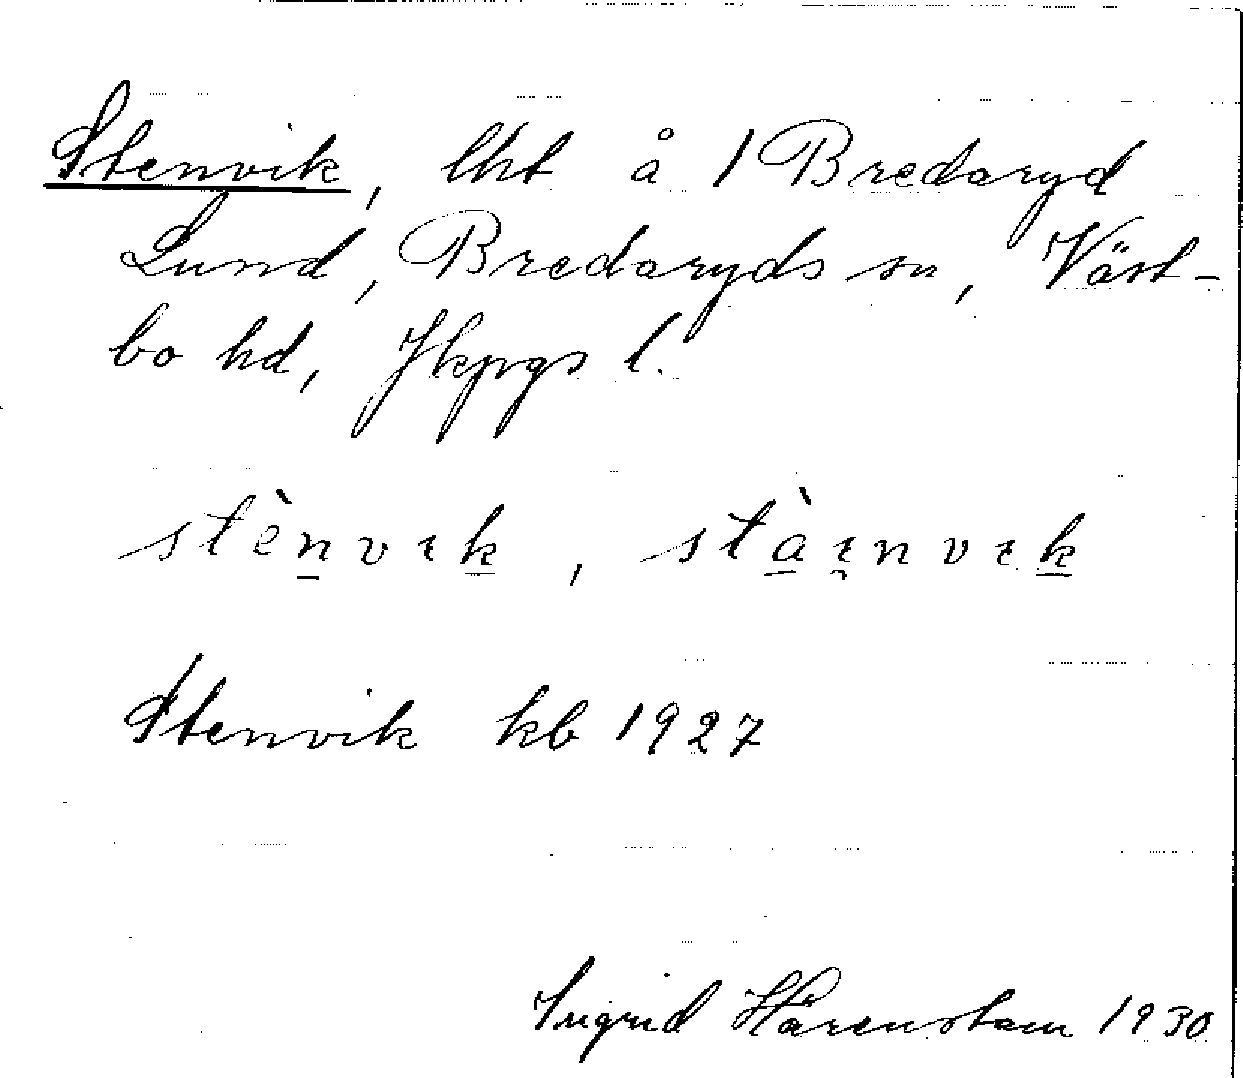 Stenvik, lht å 1 Bredaryd
Lund, Bredaryds sn, Väst-
bo hd, Jkpgs l.
stènvɪk, stàɪ̯nvɪk
Stenvik kb 1927
Ingrid Härenstam 1930